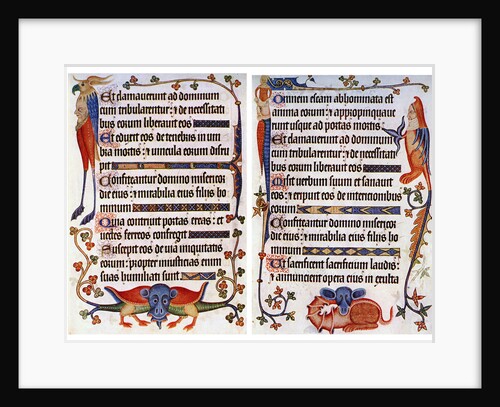 Et clamaverunt ad dominum
cum tribularentur: et de necessitati
bus eorum liberavit eos
Et eduxit eos de tenebris in um
bra mortis: et vincula eorum disru
pit
Confiteantur domino misericor
die eius: et mirabilia eius filiis ho
minum
Quia contrivit portas ereas: et
vectes ferreos confregit
Suscepit eos de via iniquitatis
eorum: propter iniusticias enim
suas humiliati sunt
Omnem escam abhominata est
anima eorum: et appropinquave
runt usque ad portas mortis
Et clamaverunt ad dominum
cum tribularentur: et de necessitati
bus eorum liberavit eos
Misit verbum suum et sanavit
eos: et eripuit eos de intericionibus
eorum
Confiteantur domino misericor
die eius: et mirabilia eius filiis ho
minum
Ut sacrificent sacrificium laudis:
et annuncient opera eius in exulta